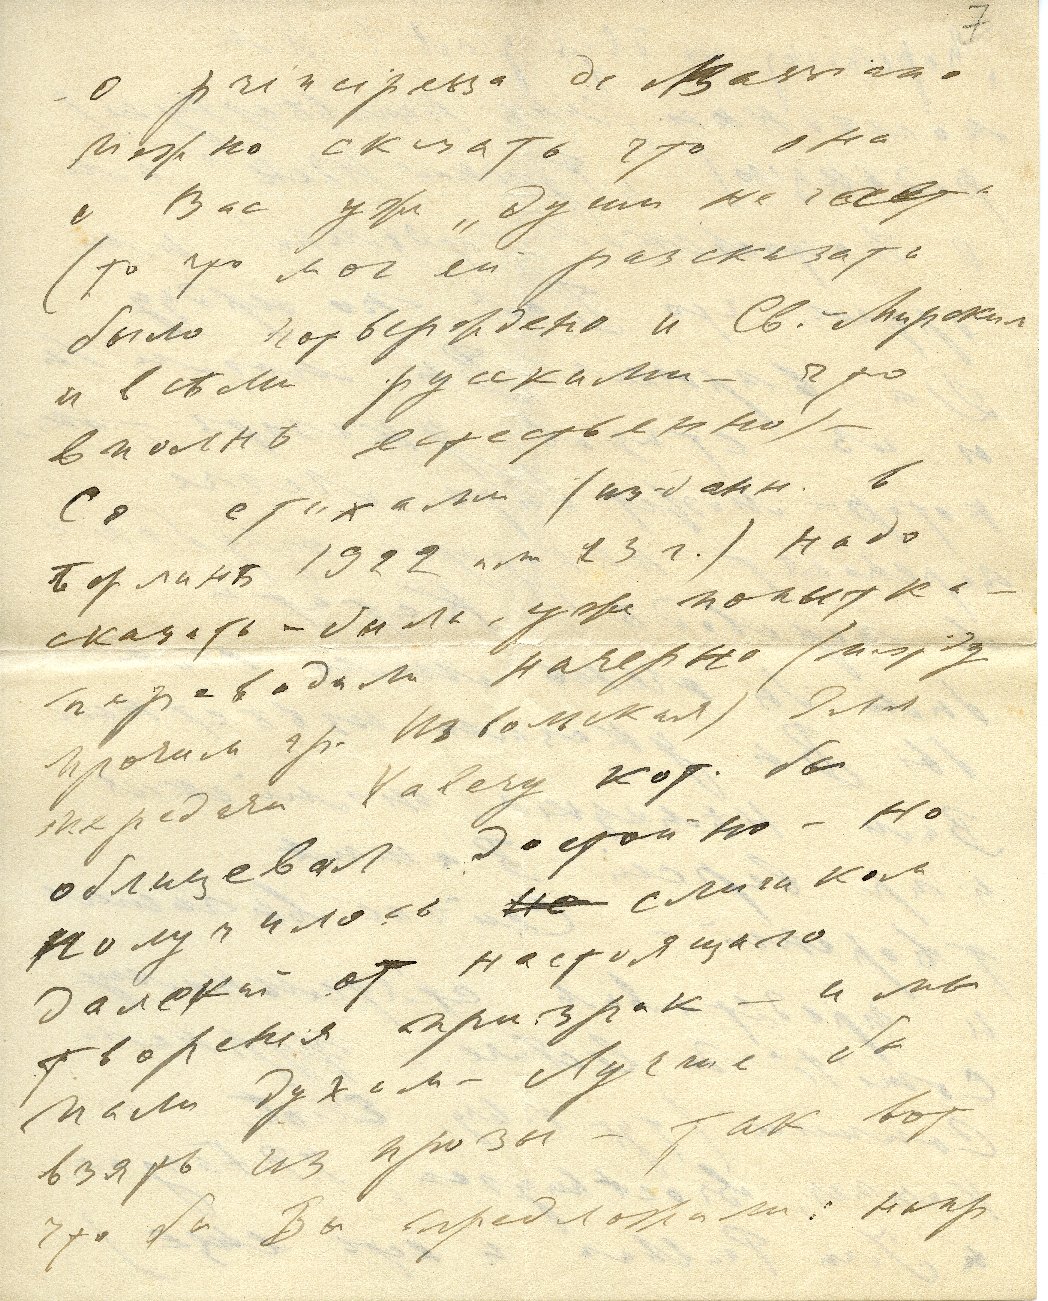 7
О principessa di Bassiano
можно сказать что она
в Вас уж „души не чает"
(то что мог ей разсказать
было подтверждено и Св.-Мирским
и всѣми русскими – что
вполнѣ естественно) –
Со стихами (издан. в
Берлинѣ 1922 или 23 г.) надо
сказать – была уже попытка –
переводили начерно (между
прочим гр. Извольская) для
передачи Valery кот. бы
облицевал достойно – но
получилось не слишком
далекий от настоящаго
творения призрак – и мы
пали духом – Лучше бы
взять из прозы – так вот
что бы Вы предложили: напр